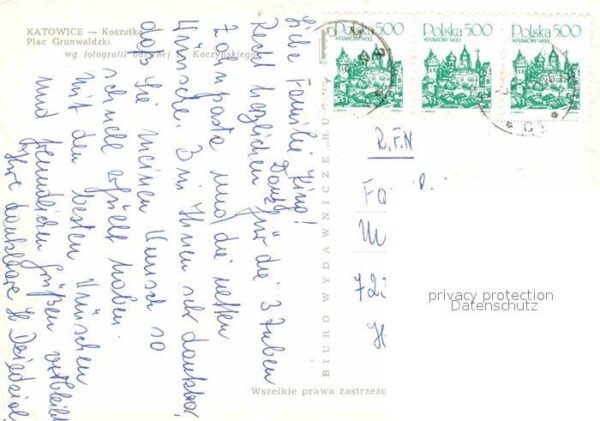 KATOWICE — Koszutka
Plac Grunwaldzki
wg fotografii barwnej Kaczyńskiego
Polska 500
KRAKÓW 1493
Polska 500
KRAKÓW 1493
Polska 500
KRAKÓW 1493
Liebe Familie King!
Recht herzlichen Dank für die 3 Tuben
Zahnpasta und die netten
Wünsche. Bin Ihnen sehr dankbar,
daß Sie meinen Wunsch so
schnell erfüllt haben.
Mit den besten Wünschen
und freundlichen Grüßen verbleibt
Ihre dankbare H Dziedzic
BIURO WYDAWNICZE „RUCH
R.F.N
Fa
M
72
H
privacy protection
Datenschutz
Wszelkie prawa zastrzeżo